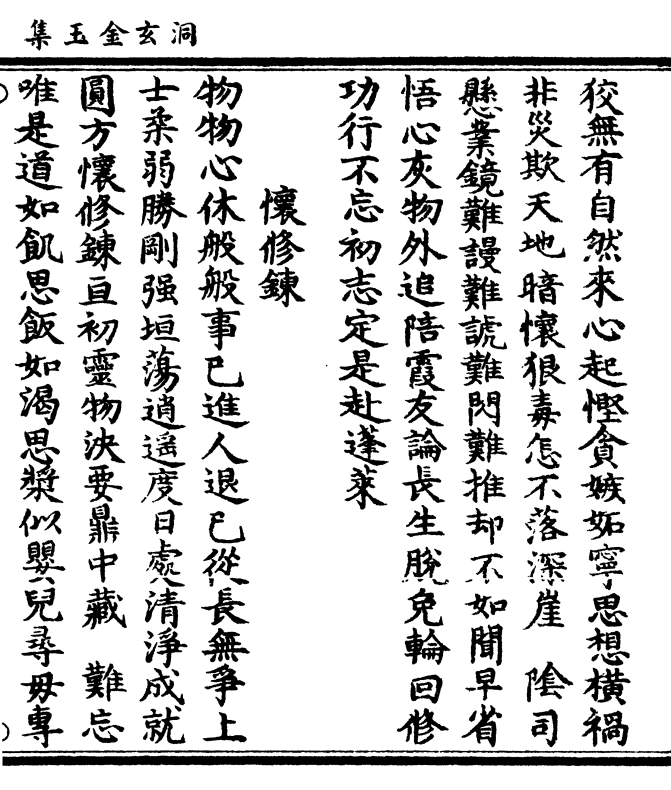 洞玄金玉集
狡無有自然來心起慳貪嫉妬寧思想橫禍
非災欺天地暗懷狠毒怎不落深崖　陰司
懸業鏡難謾難諕難閃難推却不如聞早省
悟心灰物外追陪霞友論長生脫免輪回修
功行不忘初志定是赴蓬萊
懷修鍊
物物心休般般事已進人退已從長無爭上
士柔弱勝剛强垣蕩逍遥度日處清淨成就
圓方懷修鍊亘初靈物決要鼎中藏　難忘
唯是道如飢思飯如渴思漿似嬰兒尋毋專